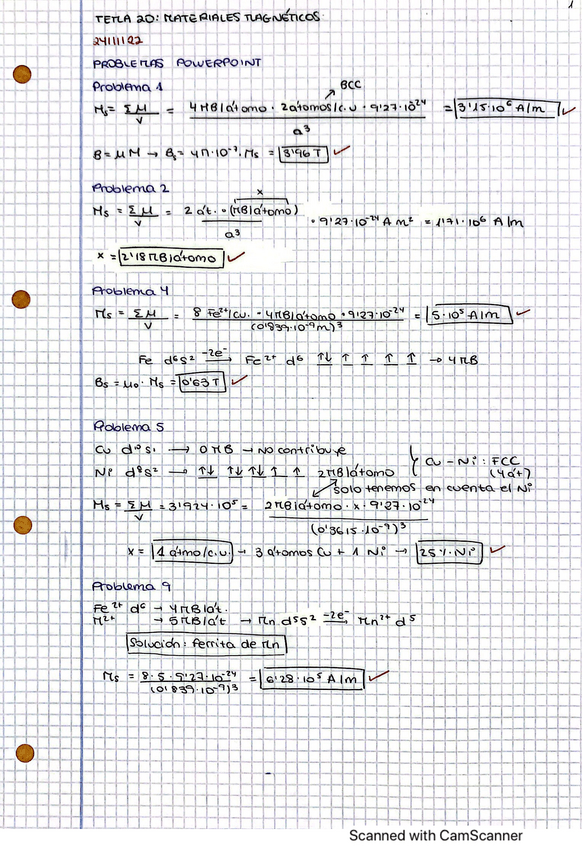 1
TEMA 20: MATERIALES MAGNÉTICOS
24/11/22
PROBLEMAS POWERPOINT
Problema 1
BCC
Ms = Σμ/V = 4 MB/átomo · 2átomos/c.u · 9'27·10⁻²⁴ / a³ = 3'15·10⁶ A/m
B = μM → Bs = 4π·10⁻⁷ · Ms = 3'96 T
Problema 2
x
Ms = Σμ/V = 2 át. · (MB/átomo) / a³ · 9'27·10⁻²⁴ A m² = 1'71·10⁶ A/m
x = 2'18 MB/átomo
Problema 4
Ms = Σμ/V = 8 Fe²⁺/cu. · 4MB/átomo · 9'27·10⁻²⁴ / (0'839·10⁻⁹m)³ = 5·10⁵ A/m
Fe d⁶s² -2e⁻→ Fe²⁺ d⁶ ↑↓ ↑ ↑ ↑ ↑ → 4 MB
Bs = μ₀ · Ms = 0'63 T
Problema 5
Cu d¹⁰s¹ → 0 MB → No contribuye
Ni d⁸s² → ↑↓ ↑↓ ↑↓ ↑ ↑ 2MB/átomo { Cu - Ni : FCC (4át)
solo tenemos en cuenta el Ni
Ms = Σμ/V = 3'924·10⁵ = 2MB/átomo · x · 9'27·10⁻²⁴ / (0'3615·10⁻⁹)³
x = 1 átmo/c.u. → 3 átomos Cu + 1 Ni → 25% Ni
Problema 9
Fe²⁺ d⁶ → 4MB/át.
M²⁺ → 5MB/át → Mn d⁵s² -2e⁻→ Mn²⁺ d⁵
Solución: ferrita de Mn
Ms = 8·5·9'27·10⁻²⁴ / (0'839·10⁻⁹)³ = 6'28·10⁵ A/m
Scanned with CamScanner